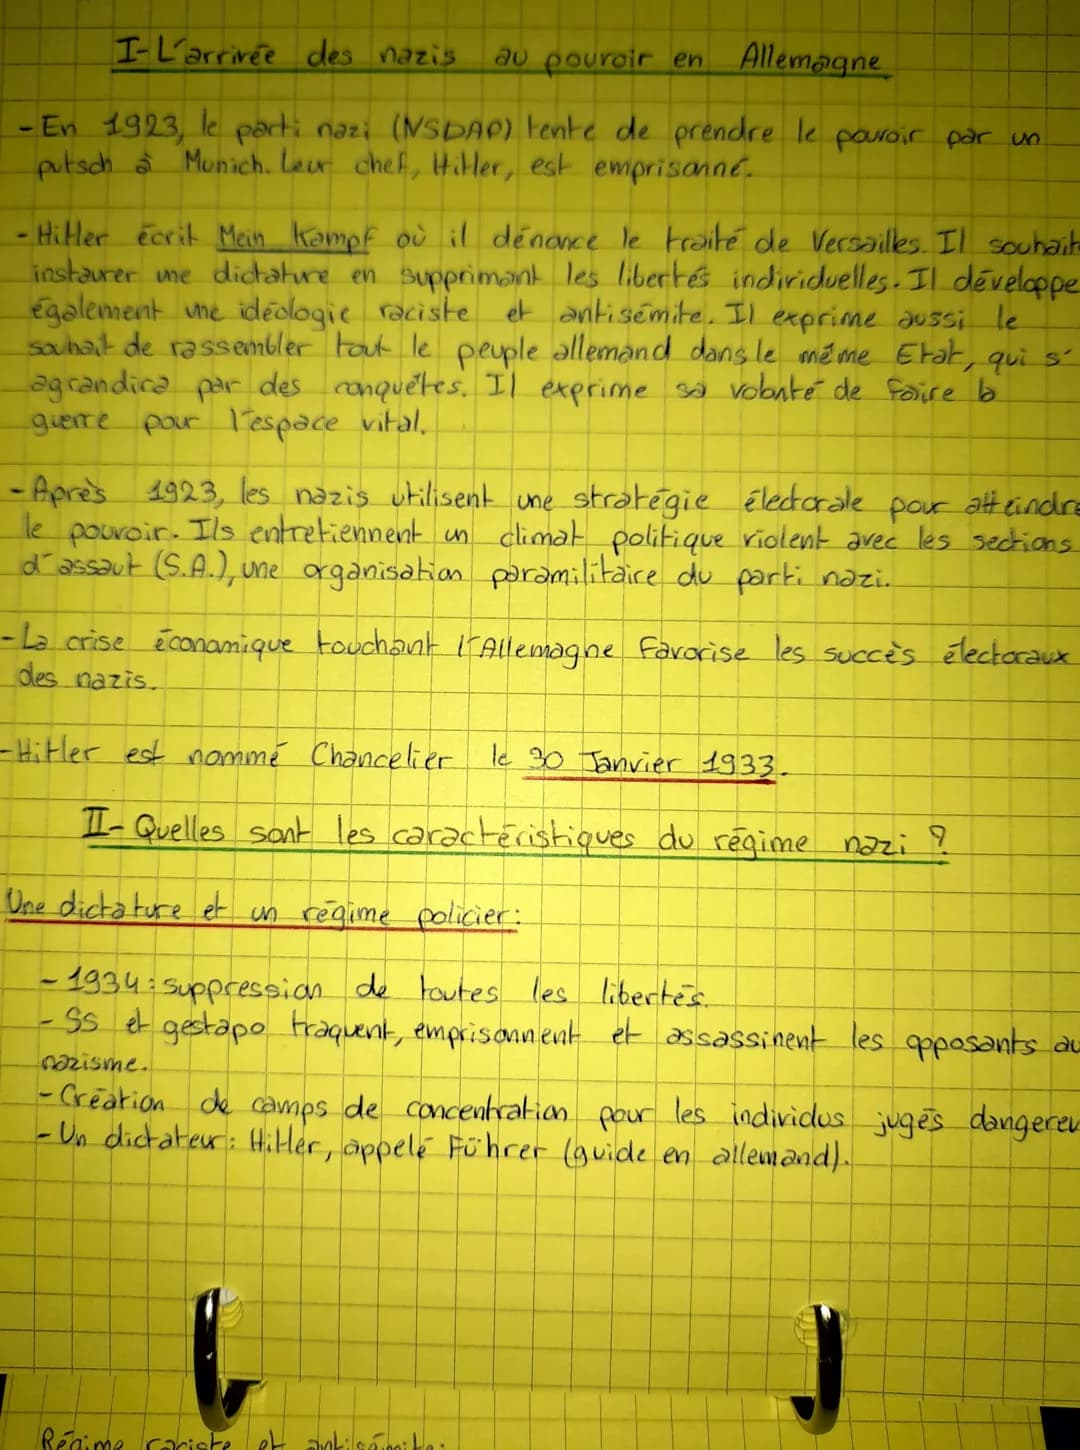 I-L'arrivée des nazis au pouvoir en Allemagne
-En 1923, le parti nazi (NSDAP) tente de prendre le pouvoir par un
putsch à Munich. Leur chef, Hitler, est emprisonné.
-Hitler écrit Mein Kampf où il dénonce le traité de Versailles. Il souhait
instaurer une dictature en supprimant les libertés individuelles. Il développe
également une idéologie raciste et antisémite. Il exprime aussi le
souhait de rassembler tout le peuple allemand dans le même Etat, qui s'
agrandira par des conquêtes. Il exprime sa volonté de faire la
guerre pour l'espace vital.
-Après 1923, les nazis utilisent une stratégie électorale pour atteindre
le pouvoir. Ils entretiennent un climat politique violent avec les sections
d'assaut (S.A.), une organisation paramilitaire du parti nazi.
-La crise économique touchant l'Allemagne favorise les succès électoraux
des nazis.
-Hitler est nommé Chancelier le 30 Janvier 1933.
II- Quelles sont les caractéristiques du régime nazi ?
Une dictature et un régime policier:
-1934: suppression de toutes les libertés.
-SS et gestapo traquent, emprisonnent et assassinent les opposants au
nazisme.
-Création de camps de concentration pour les individus jugés dangereu
-Un dictateur: Hitler, appelé Führer (guide en allemand).
Régime raciste et antisémite: